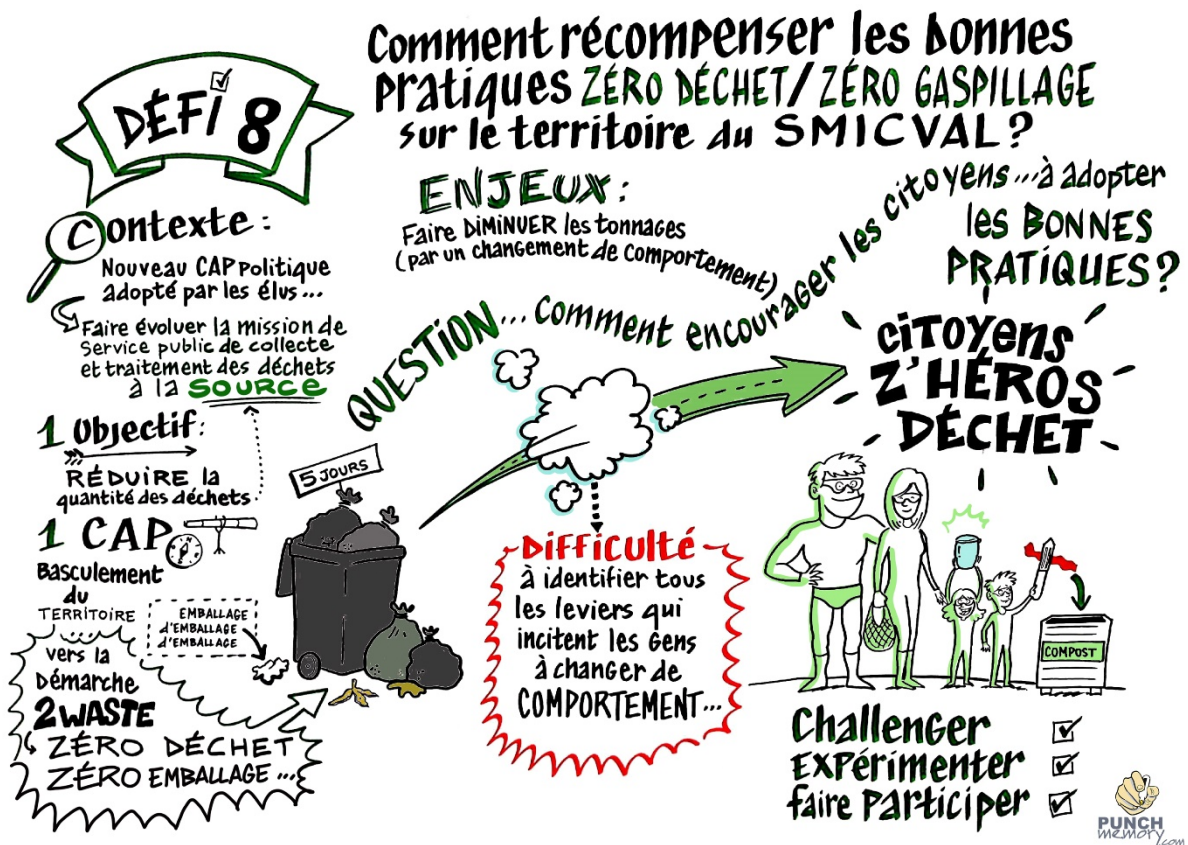 DÉFI 8
Comment récompenser les bonnes
pratiques ZÉRO DÉCHET/ZÉRO GASPILLAGE
sur le territoire du SMICVAL?
Contexte :
Nouveau CAP politique
adopté par les élus...
Faire évoluer la mission de
Service public de collecte
et traitement des déchets
à la SOURCE
1 Objectif:
RÉDUIRE la
quantité des déchets
1 CAP
Basculement
du
TERRITOIRE
vers la
Démarche
2WASTE
ZÉRO DÉCHET
ZÉRO EMBALLAGE...
EMBALLAGE
d'EMBALLAGE
d'EMBALLAGE
5 JOURS
ENJEUX:
Faire DIMINUER les tonnages
(par un changement de comportement)
QUESTION... comment encourager les citoyens...à adopter
les BONNES
PRATIQUES?
Difficulté
à identifier tous
les leviers qui
incitent les gens
à changer de
COMPORTEMENT...
citoyens
Z'HÉROS
DÉCHET
COMPOST
Challenger
Expérimenter
faire Participer
PUNCH
memory.com